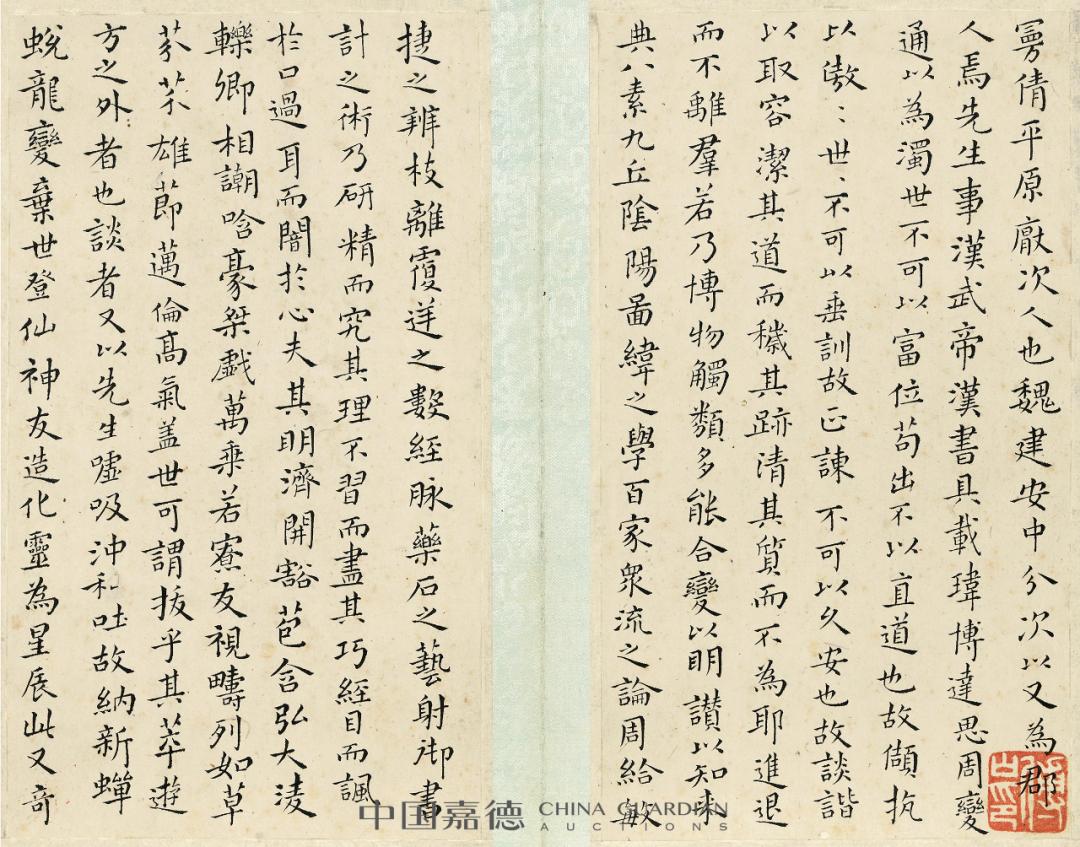 曼倩平原厰次人也魏建安中分次以又為郡
人焉先生事漢武帝漢書具載瑋博達思周變
通以為濁世不可以富位苟出不以直道也故頡抗
以傲〻世〻不可以垂訓故正諫不可以久安也故談諧
以取容潔其道而穢其跡清其質而不為耶進退
而不離羣若乃博物觸類多能合變以明讃以知来
典八素九丘陰陽啚緯之學百家衆流之論周給敏
捷之辨枝離覆逆之數經脉藥石之藝射御書
計之術乃研精而究其理不習而盡其巧經目而諷
於口過耳而闇於心夫其明濟開豁苞含弘大淩
轢卿相謿唅豪桀戯萬乗若寮友視疇列如草
芥芥雄莭邁倫髙氣盖世可謂拔乎其萃遊
方之外者也談者又以先生噓吸沖和吐故納新蟬
蛻龍變棄世登仙神友造化靈為星辰此又奇
中国嘉德 CHINA GUARDIAN AUCTIONS